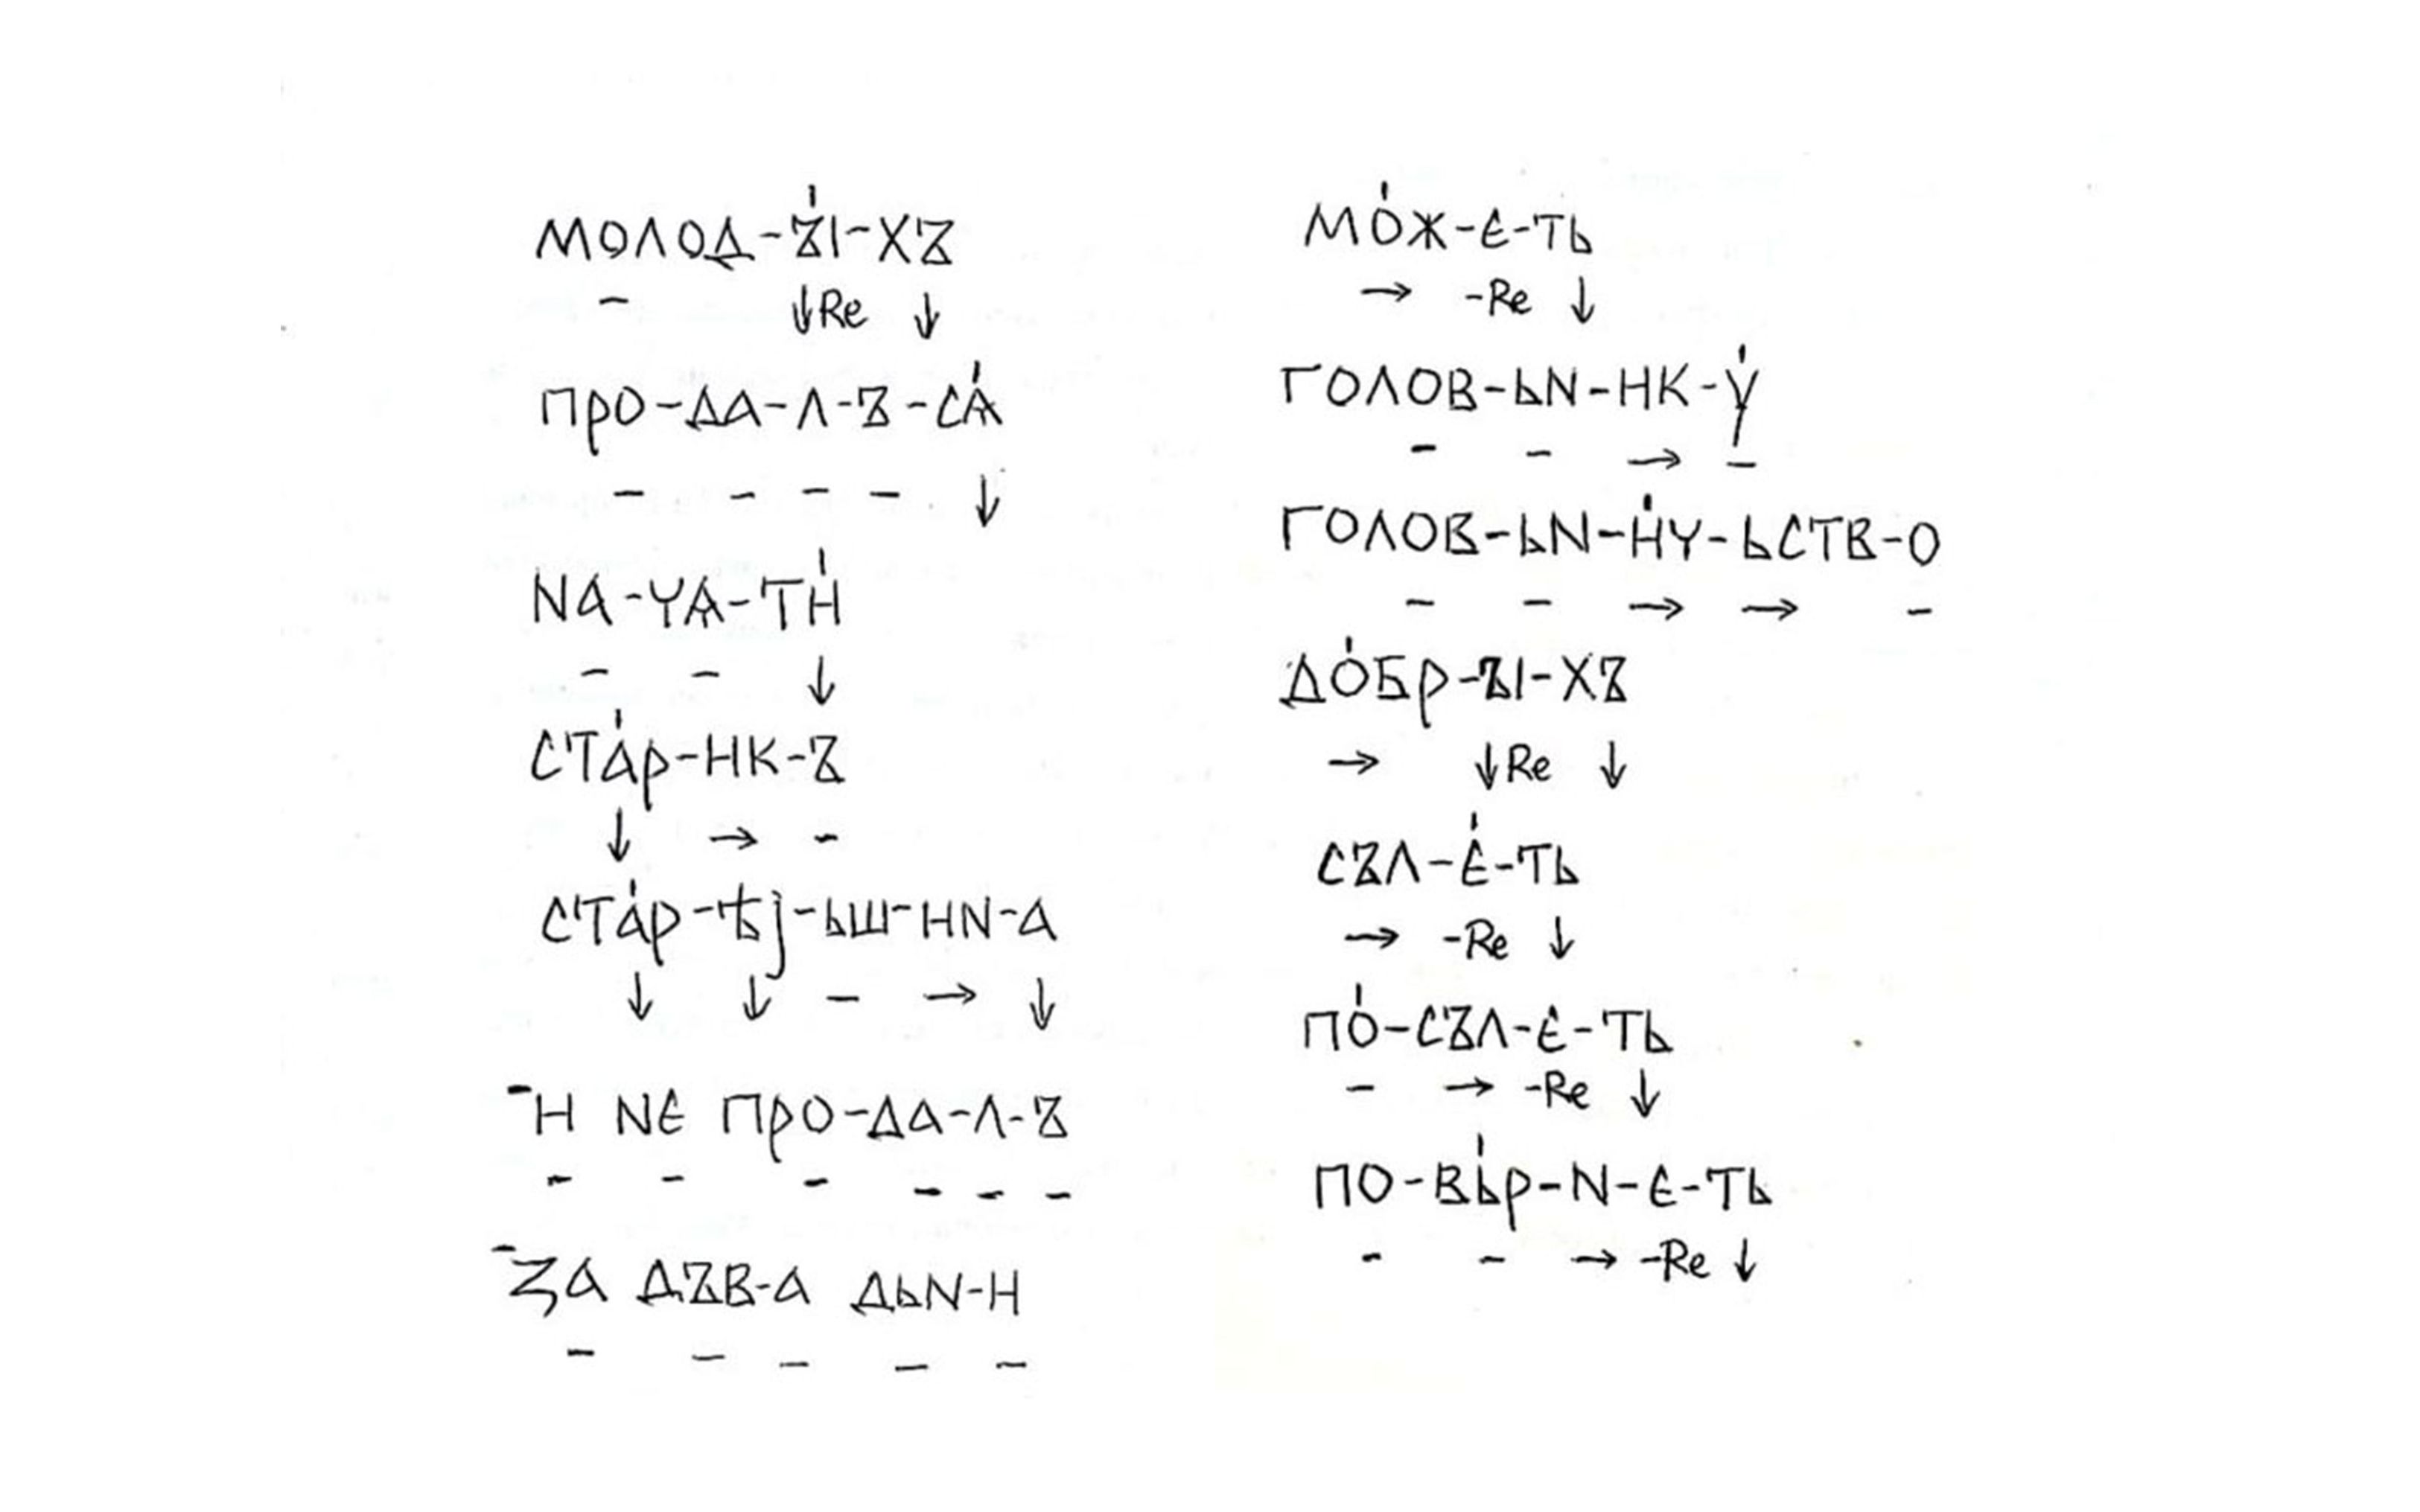 МОЛОД-Ꙑ́-ХЪ
– ↓Re ↓
ПРО-ДА-Л-Ъ-СѦ́
– – – – ↓
NА-ЧѦ-ТН́
– – ↓
СТА́Р-НК-Ъ
↓ → –
СТА́Р-Ѣj-ЬШ-НN-А
↓ ↓ – → ↓
¯Н NЄ ПРО-ДА-Л-Ъ
– – – – – –
¯ЗА ДЪВ-А ДЬN-Н
– – – – –
МО́Ж-Є-ТЬ
→ -Re ↓
ГОЛОВ-ЬN-НК-У́
– – → –
ГОЛОВ-ЬN-Н́Ч-ЬСТВ-О
– – → → –
ДО́БР-Ꙑ-ХЪ
→ ↓Re ↓
СЪЛ-Є́-ТЬ
→ -Re ↓
ПО́-СЪЛ-Є-ТЬ
– → -Re ↓
ПО-ВЬ́Р-N-Є-ТЬ
– – → -Re ↓